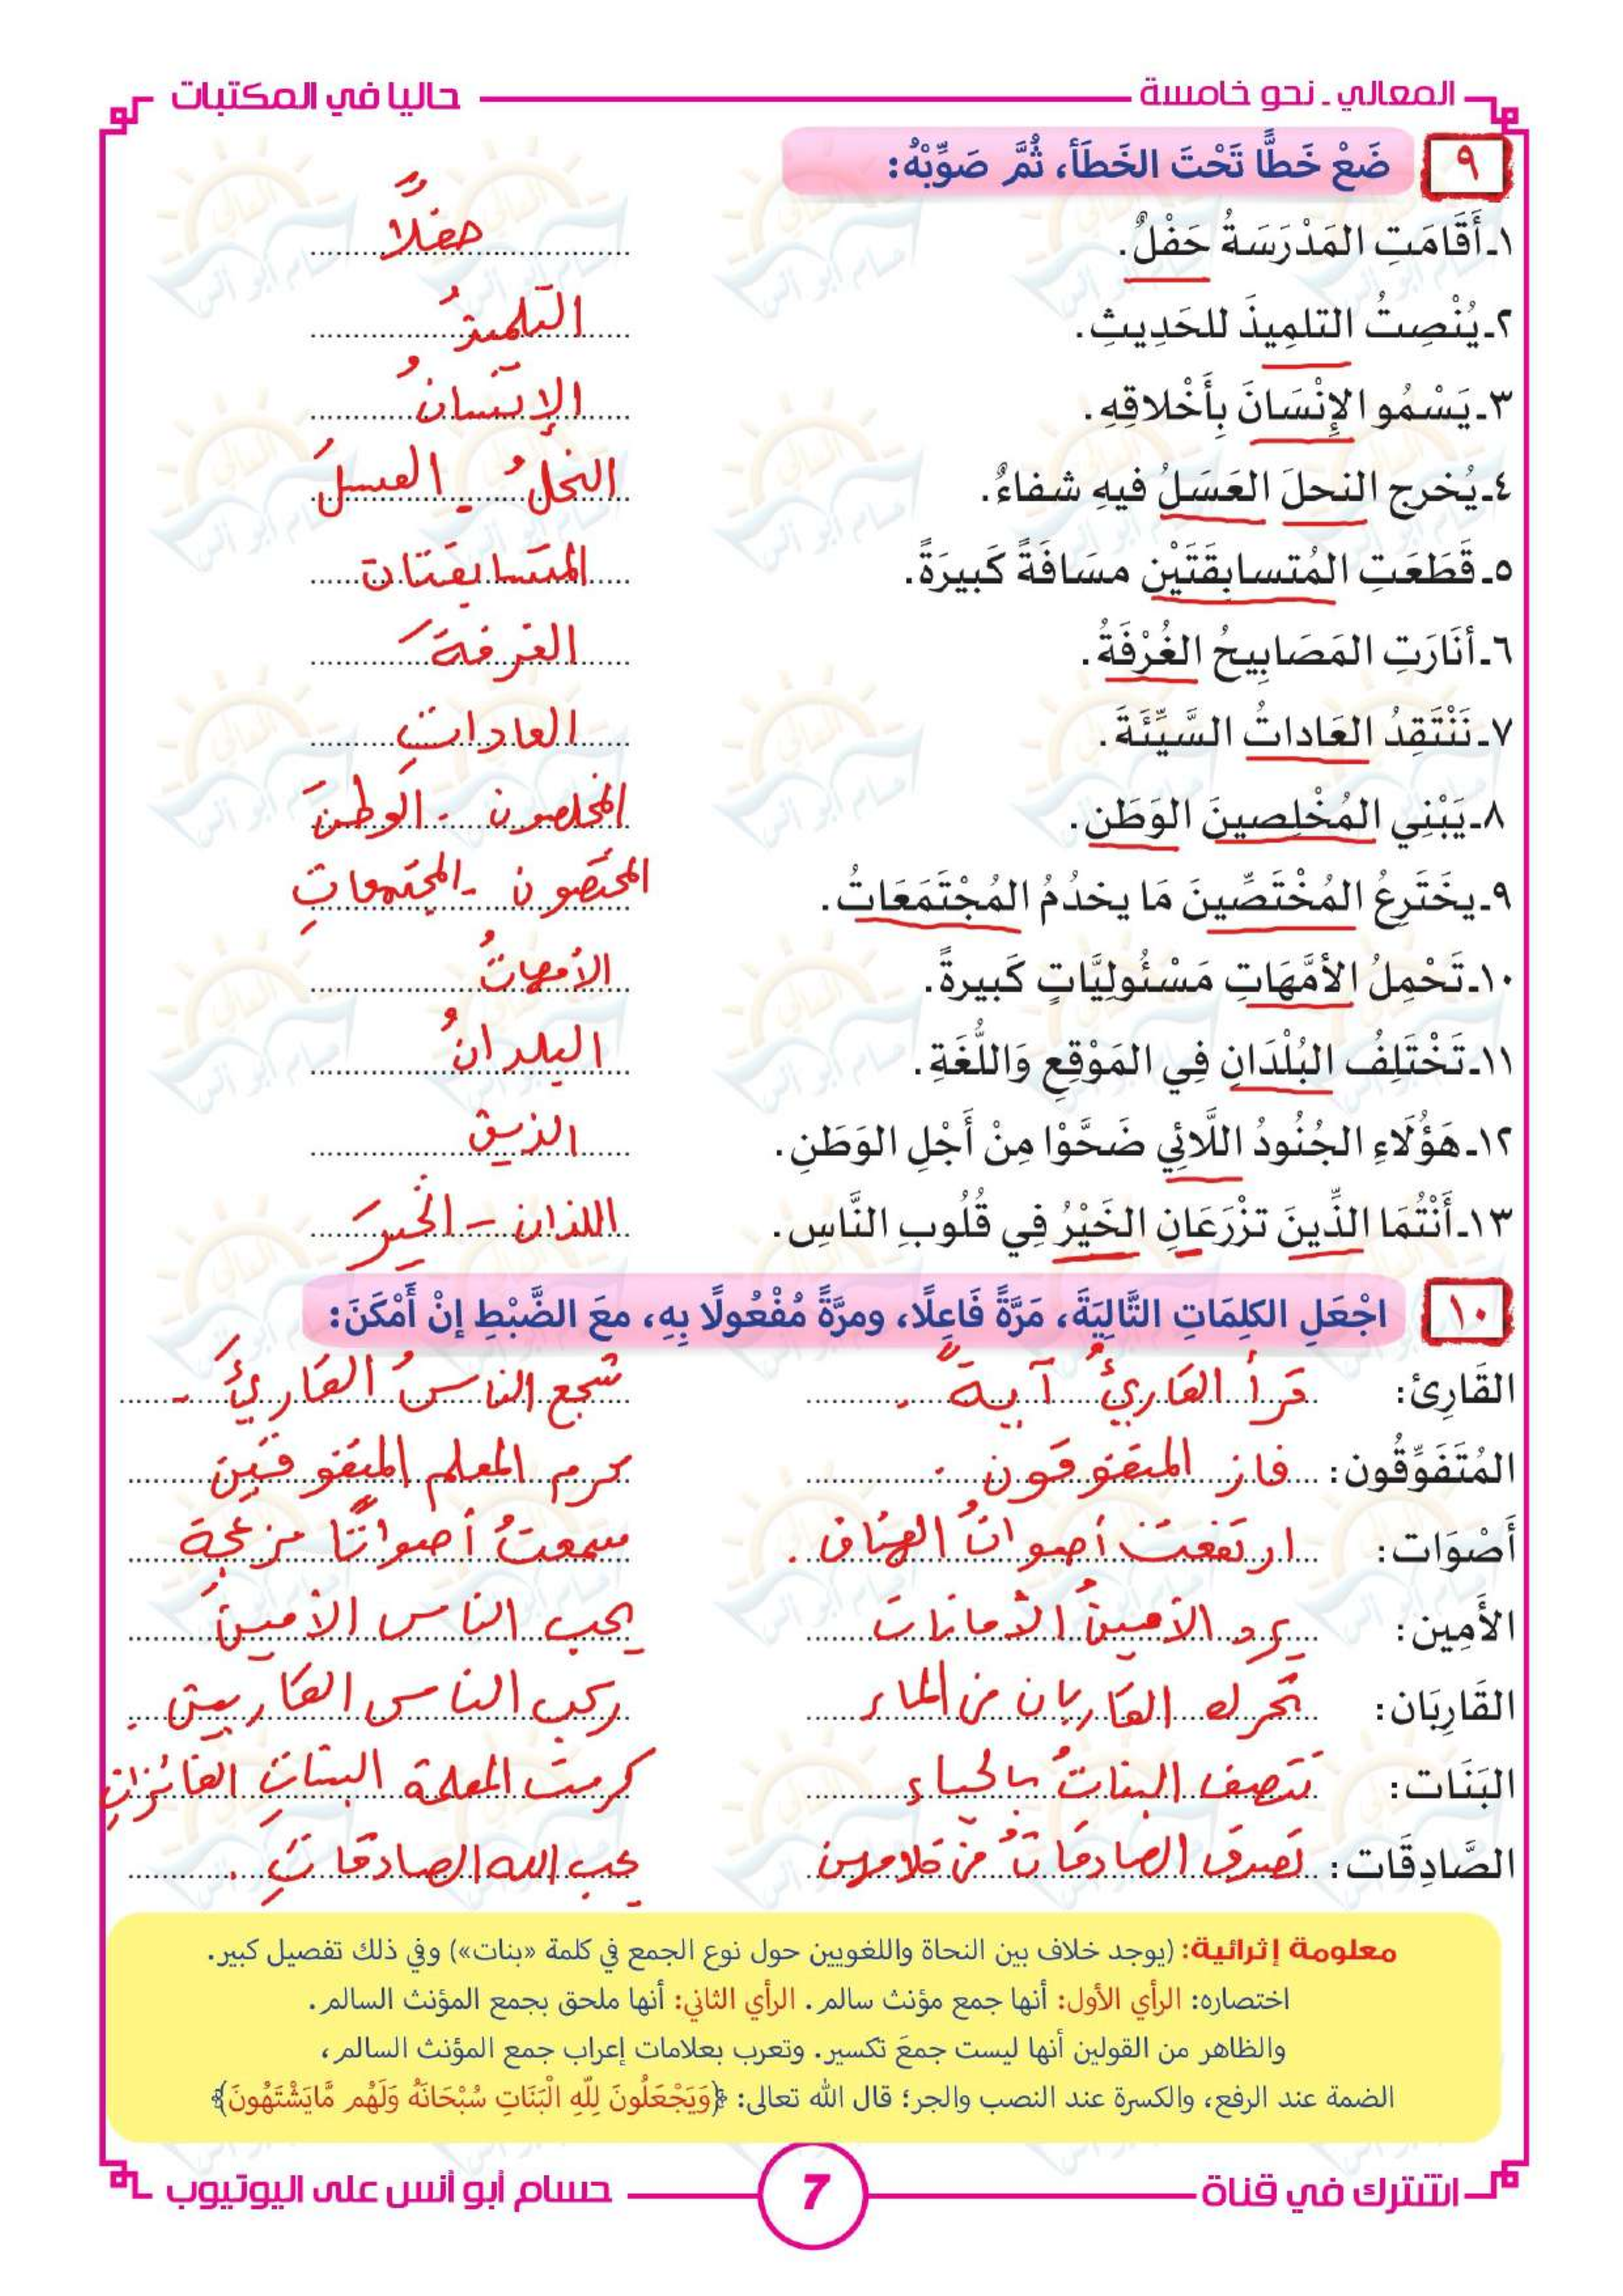 المعالي ـ نحو خامسة
حاليا في المكتبات
٩ ضَعْ خَطًّا تَحْتَ الخَطَأَ، ثُمَّ صَوِّبْهُ:
١ـ أَقَامَتِ المَدْرَسَةُ حَفْلٌ. حفلاً
٢ـ يُنْصِتُ التلمِيذَ للحَدِيثِ. التلميذُ
٣ـ يَسْمُو الإِنْسَانَ بِأَخْلاقِهِ. الإنسانُ
٤ـ يُخرج النحلَ العَسَلُ فيهِ شفاءٌ. النحلُ - العسلَ
٥ـ قَطَعَتِ المُتسابِقَتَيْنِ مسَافَةً كَبِيرَةً. المتسابقتان
٦ـ أنَارَتِ المَصَابِيحُ الغُرْفَةُ. الغرفةَ
٧ـ نَنْتَقِدُ العَاداتُ السَّيِّئَةَ. العاداتِ
٨ـ يَبْنِي المُخْلِصينَ الوَطَن. المخلصون - الوطنَ
٩ـ يخَتَرِعُ المُخْتَصِّينَ مَا يخدُمُ المُجْتَمَعَاتُ. المختصون - المجتمعاتِ
١٠ـ تَحْمِلُ الأمَّهَاتِ مَسْئُوليَّاتٍ كَبيرةً. الأمهاتُ
١١ـ تَخْتَلِفُ البُلْدَانِ فِي المَوْقِعِ وَاللُّغَةِ. البلدانُ
١٢ـ هَؤُلَاءِ الجُنُودُ اللَّائِي ضَحَّوْا مِنْ أَجْلِ الوَطَنِ. الذين
١٣ـ أَنْتُمَا الذَّينَ تزْرَعَانِ الخَيْرُ فِي قُلُوبِ النَّاسِ. اللذان - الخيرَ
١٠ اجْعَلِ الكلِمَاتِ التَّالِيَةَ، مَرَّةً فَاعِلًا، ومرَّةً مُفْعُولًا بِهِ، معَ الضَّبْطِ إنْ أَمْكَنَ:
القَارِئ: قرأ القارئُ آيةً . شجع الناسُ القارئَ .
المُتَفَوِّقُون: فاز المتفوقون . كرم المعلم المتفوقين
أَصْوَات: ارتفعت أصواتُ الهتاف . سمعتُ أصواتًا مزعجة
الأَمِين: يرد الأمينُ الأمانات يحب الناس الأمينَ
القَارِبَان: تحرك القاربان من الماء ركب الناس القاربين .
البَنَات: تتصف البناتُ بالحياء كرمت المعلمة البناتِ الفائزاتِ
الصَّادِقَات: تصدق الصادقاتُ من كلامهن يحب الله الصادقاتِ .
معلومة إثرائية: (يوجد خلاف بين النحاة واللغويين حول نوع الجمع في كلمة «بنات») وفي ذلك تفصيل كبير.
اختصاره: الرأي الأول: أنها جمع مؤنث سالم. الرأي الثاني: أنها ملحق بجمع المؤنث السالم.
والظاهر من القولين أنها ليست جمعَ تكسير. وتعرب بعلامات إعراب جمع المؤنث السالم،
الضمة عند الرفع، والكسرة عند النصب والجر؛ قال الله تعالى: ﴿وَيَجْعَلُونَ لِلَّهِ الْبَنَاتِ سُبْحَانَهُ وَلَهُم مَّايَشْتَهُونَ﴾
اشترك في قناة
7
حسام أبو أنس على اليوتيوب